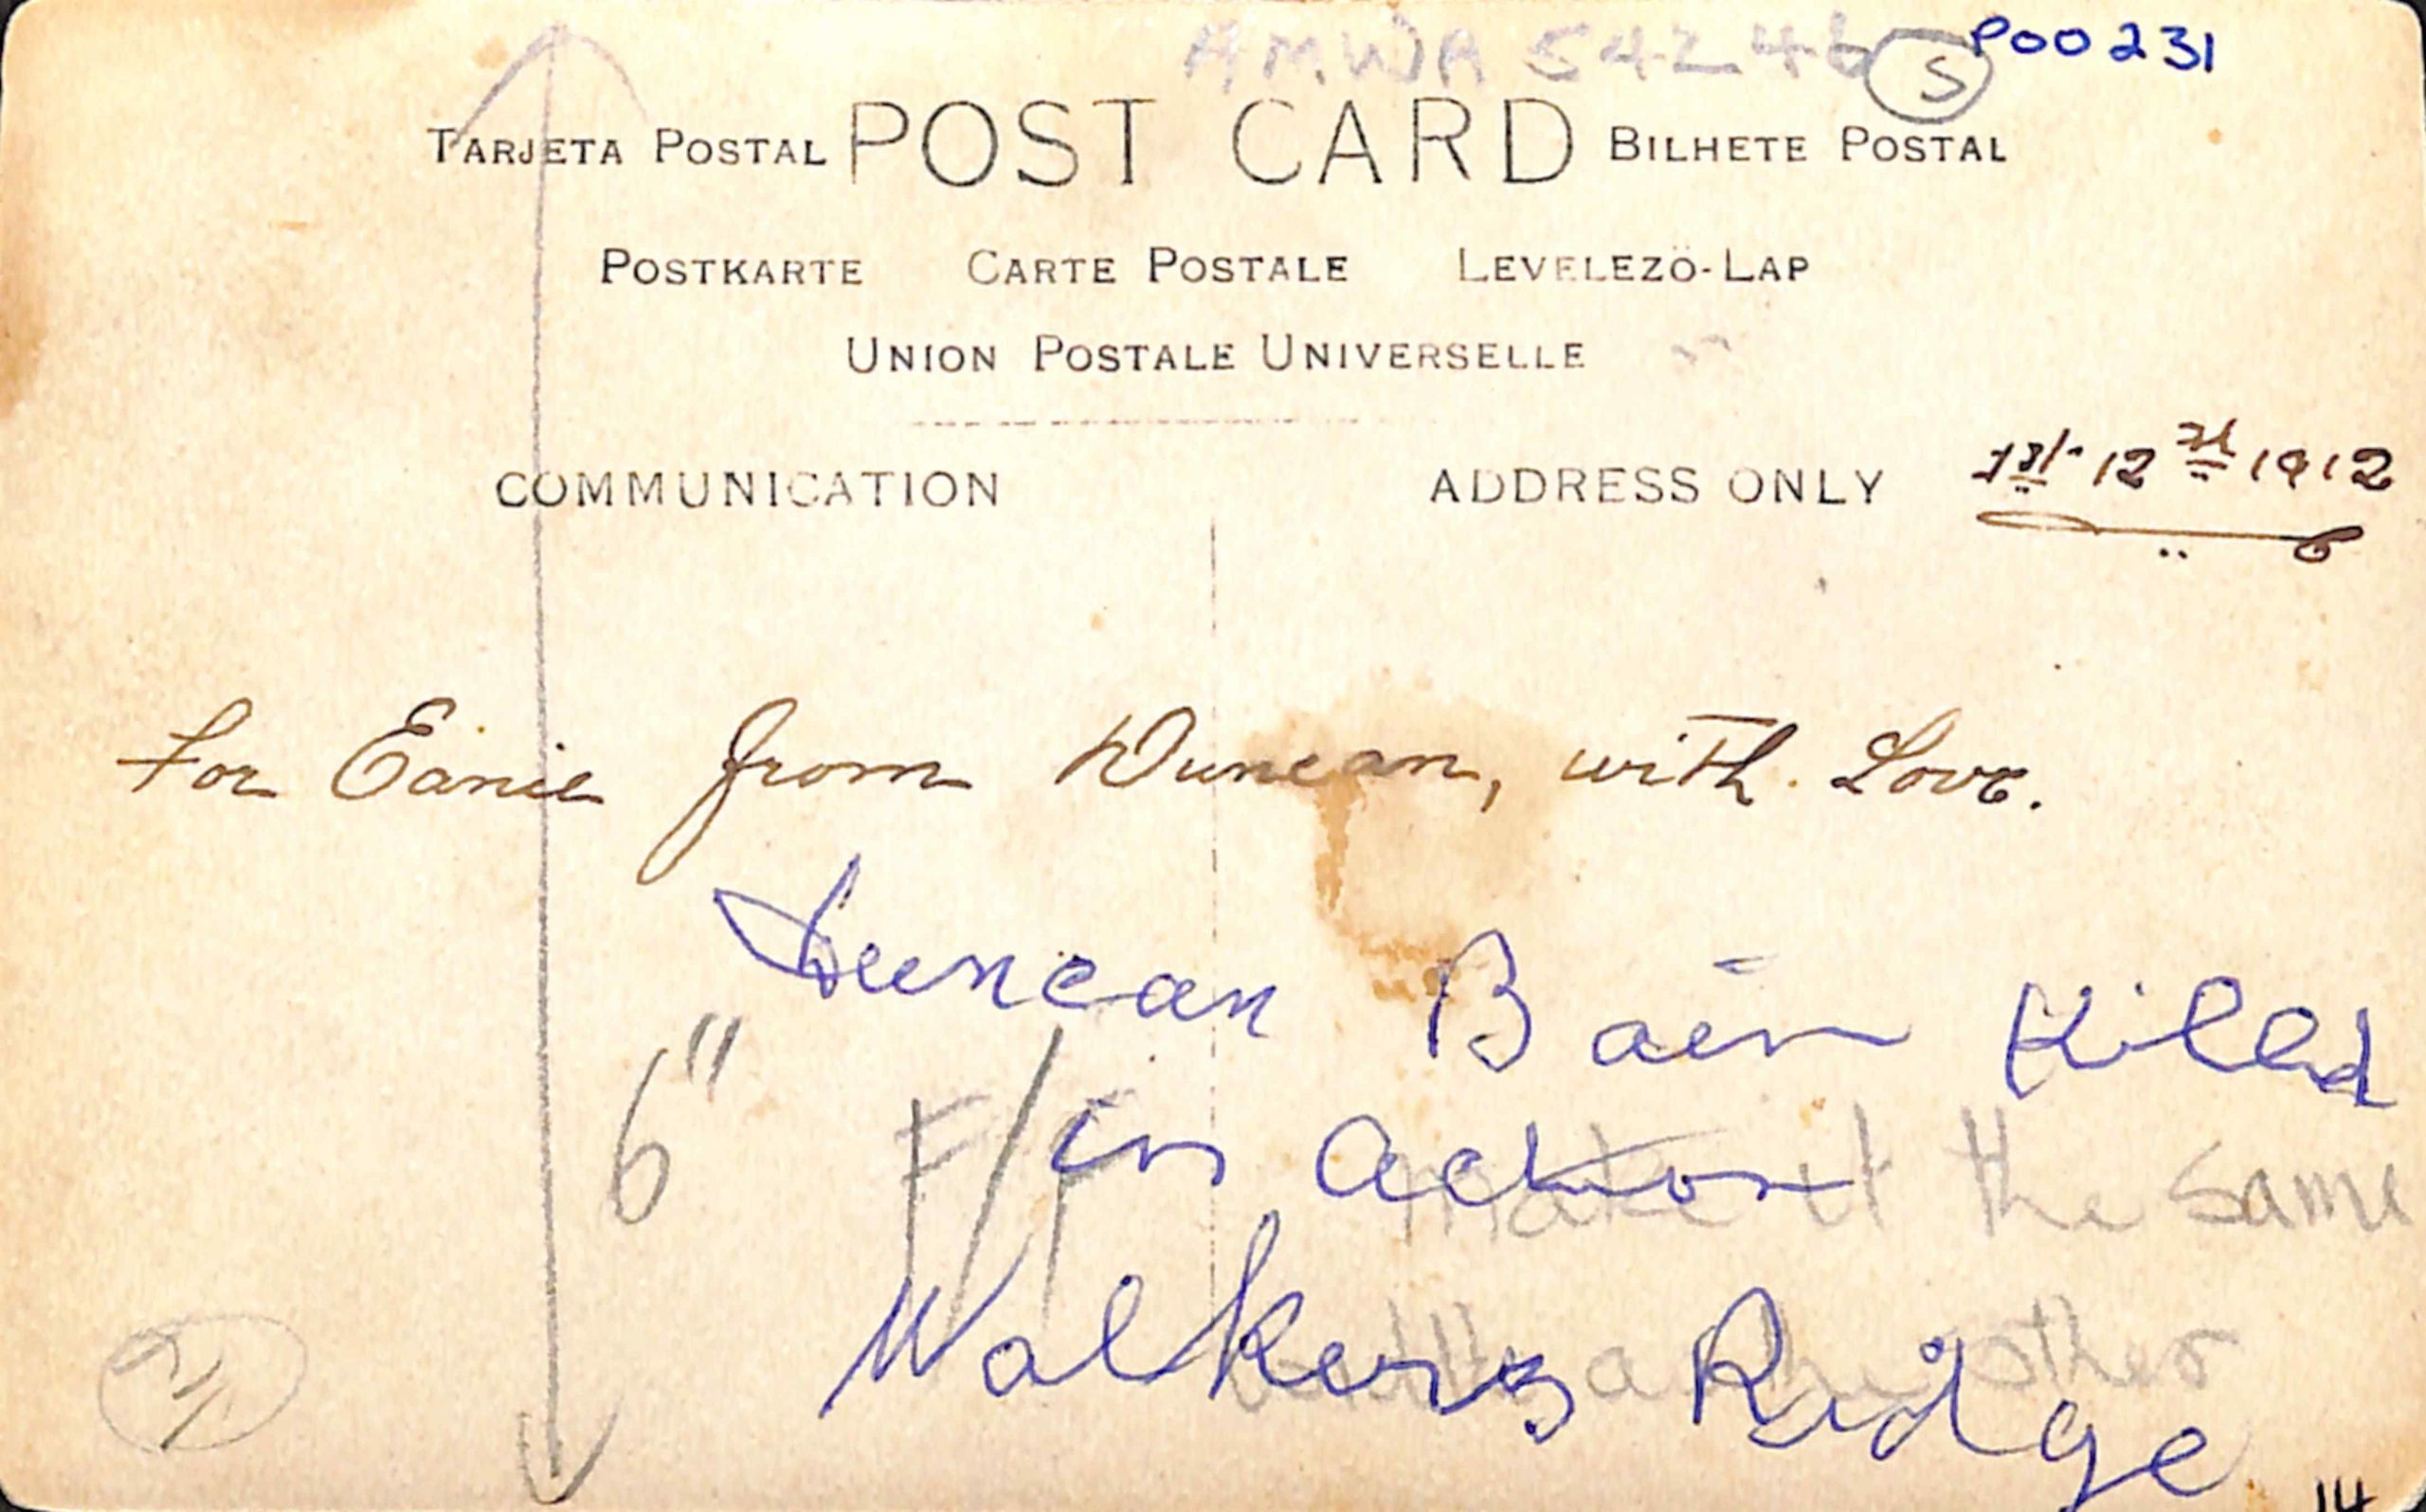 P00231
S
TARJETA POSTAL POST CARD BILHETE POSTAL
POSTKARTE CARTE POSTALE LEVELEZÖ-LAP
UNION POSTALE UNIVERSELLE
COMMUNICATION ADDRESS ONLY
12 1912
For Eanie from Duncan, with Love.
Duncan Bain Killed
6" F/F in action
make it the same
Walkers Ridge
as the other
14